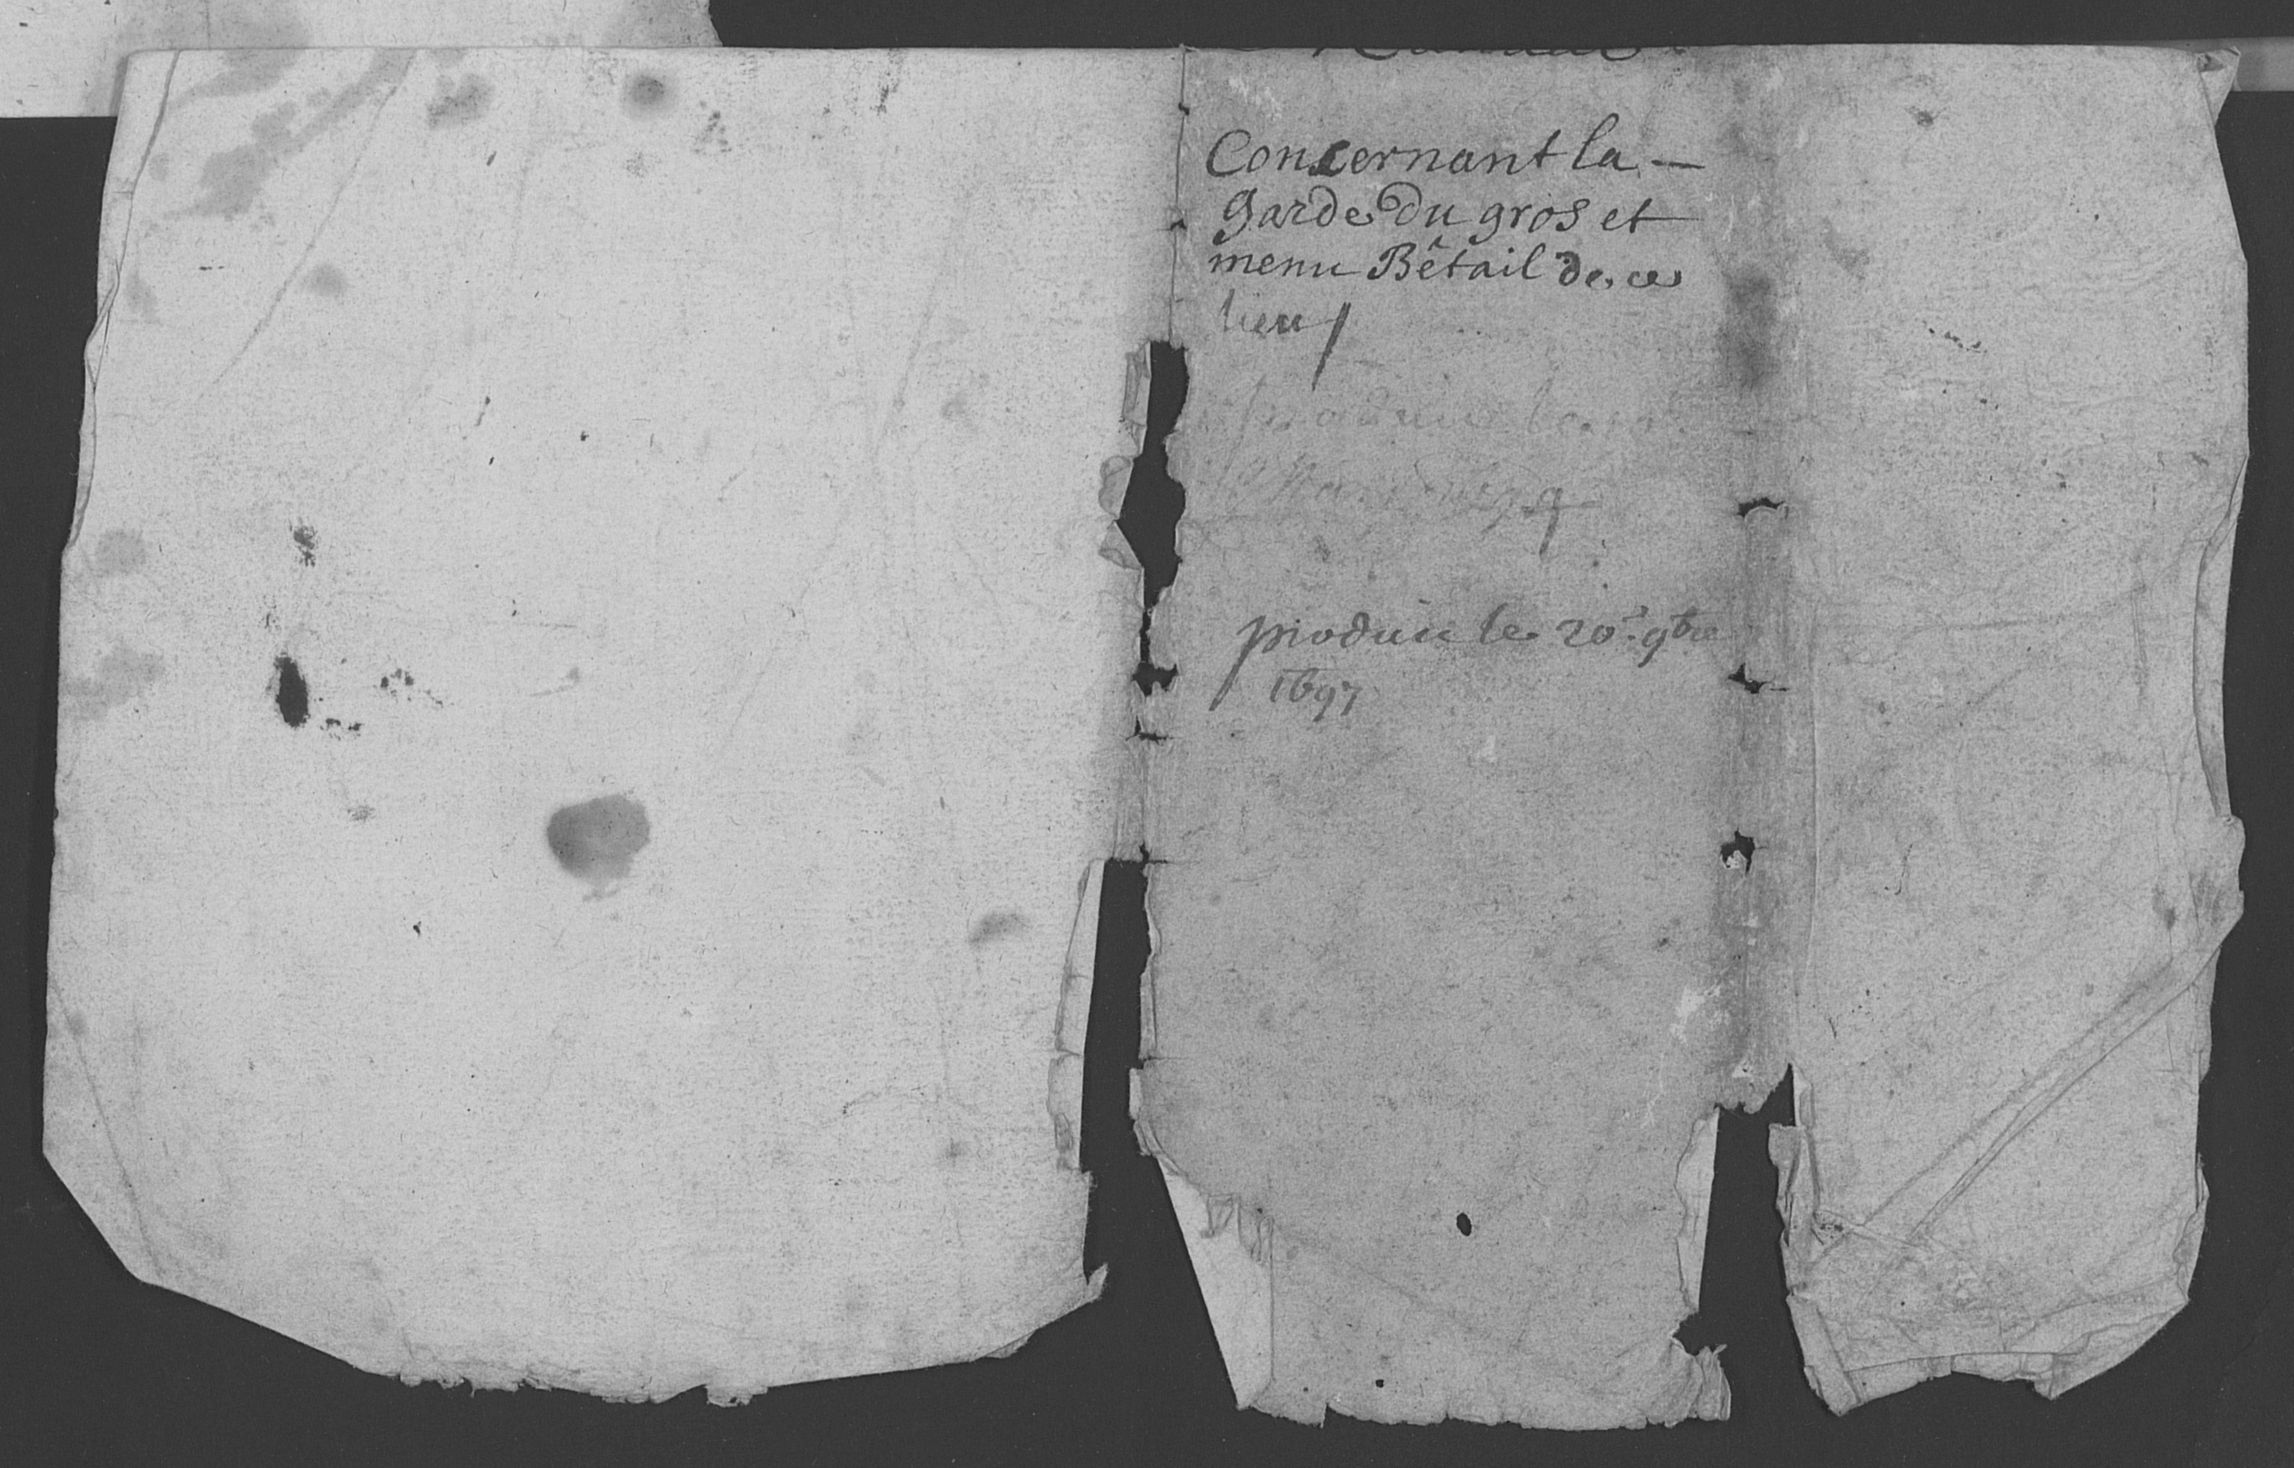 Concernant la —
garde du gros et
menu Bêtail de ce
lieu
produit le 20.e 9bre
1697